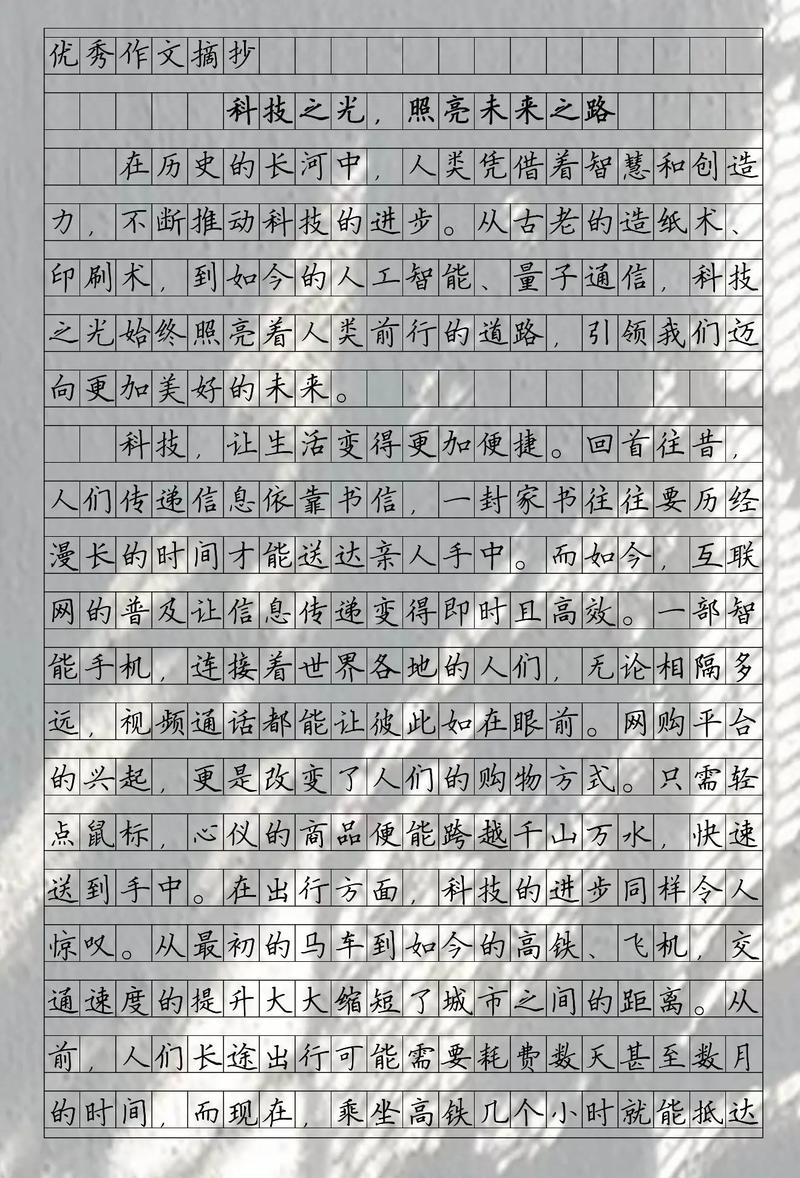 优秀作文摘抄
科技之光，照亮未来之路
在历史的长河中，人类凭借着智慧和创造
力，不断推动科技的进步。从古老的造纸术、
印刷术，到如今的人工智能、量子通信，科技
之光始终照亮着人类前行的道路，引领我们迈
向更加美好的未来。
科技，让生活变得更加便捷。回首往昔，
人们传递信息依靠书信，一封家书往往要历经
漫长的时间才能送达亲人手中。而如今，互联
网的普及让信息传递变得即时且高效。一部智
能手机，连接着世界各地的人们，无论相隔多
远，视频通话都能让彼此如在眼前。网购平台
的兴起，更是改变了人们的购物方式。只需轻
点鼠标，心仪的商品便能跨越千山万水，快速
送到手中。在出行方面，科技的进步同样令人
惊叹。从最初的马车到如今的高铁、飞机，交
通速度的提升大大缩短了城市之间的距离。从
前，人们长途出行可能需要耗费数天甚至数月
的时间，而现在，乘坐高铁几个小时就能抵达